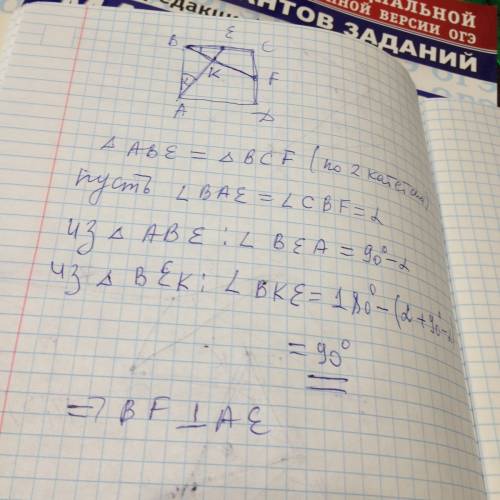 НАЛЬНОЙ
ННОЙ ВЕРСИИ ОГЭ
АНТОВ ЗАДАНИЙ
редакци
B E C
α K F
A D
△ ABE = △ BCF (по 2 катетам)
пусть ∠ BAE = ∠ CBF = α
из △ ABE : ∠ BEA = 90° - α
из △ BEK : ∠ BKE = 180° - (α + 90° -
= 90°
=> BF ⊥ AE